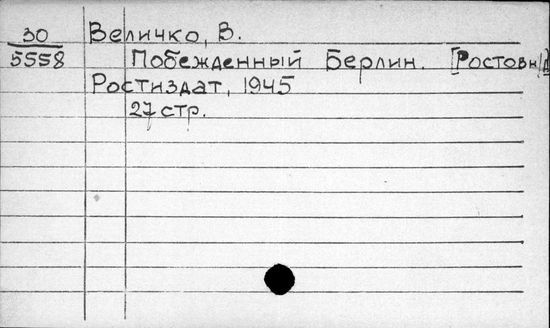 30
5558
Величко, В.
Побежденный Берлин. [Ростовн/Д
Ростиздат, 1945
27 стр.